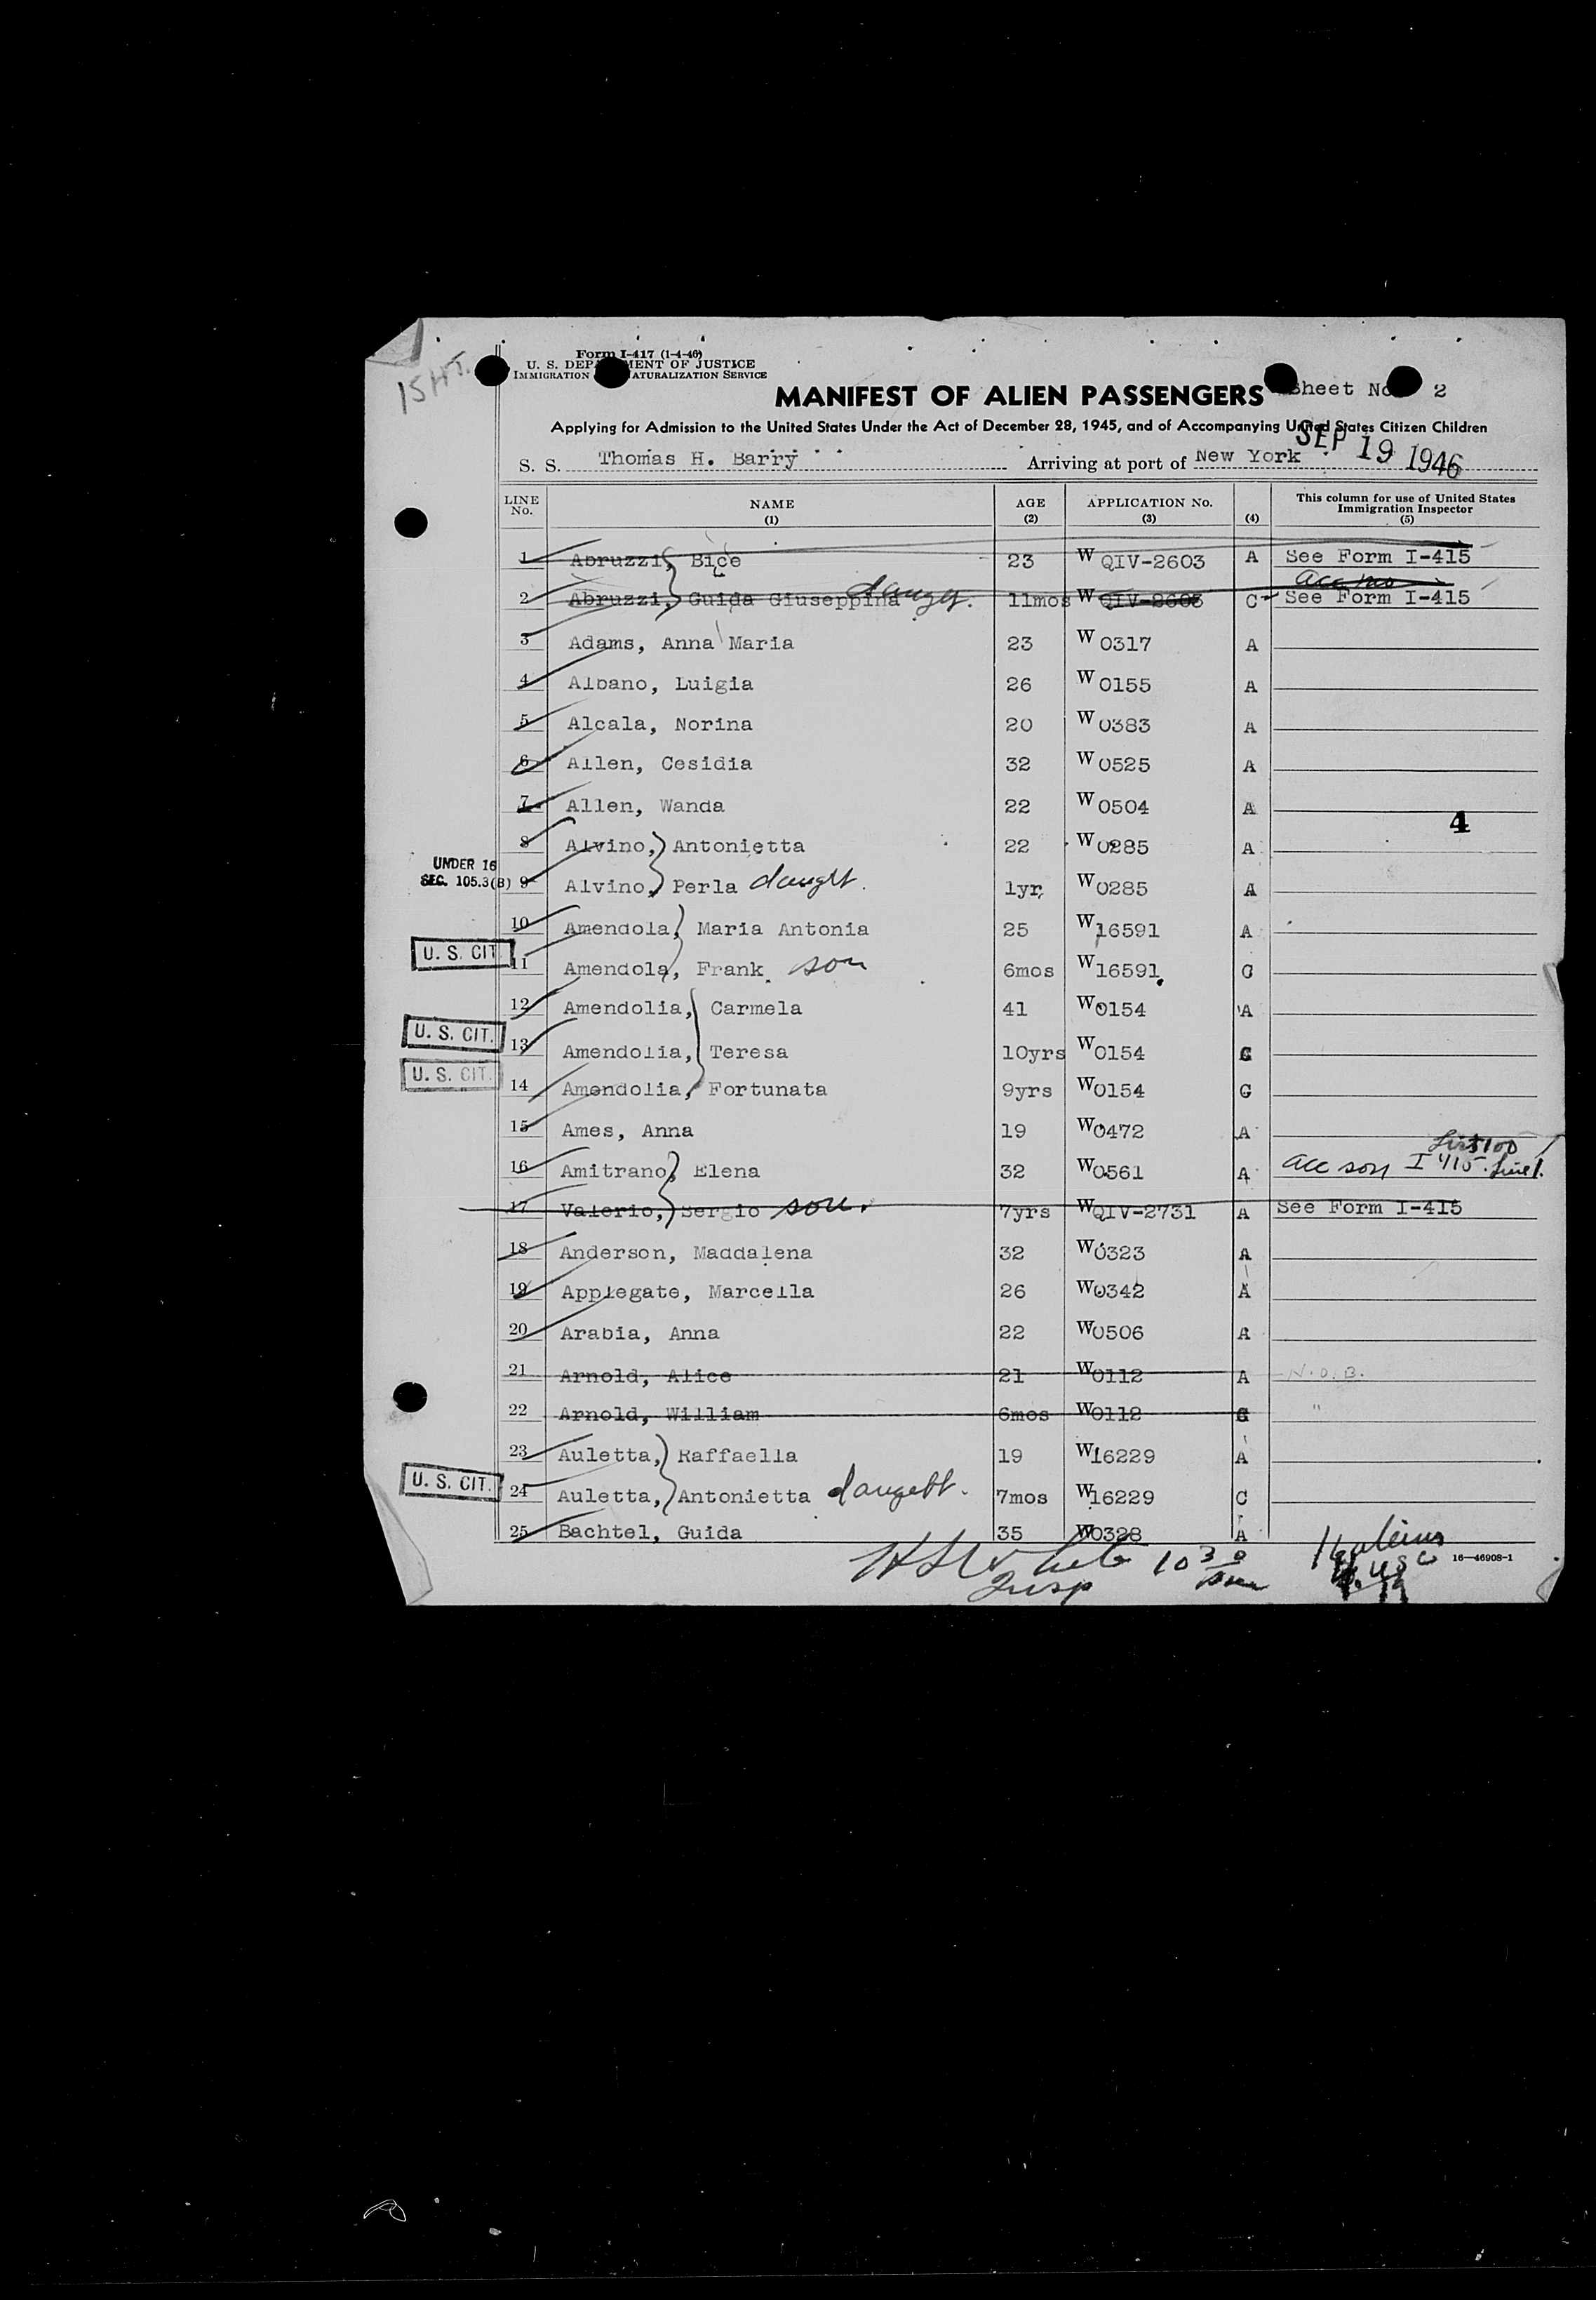 15 HT.
Form I-417 (1-4-46)
U. S. DEPA MENT OF JUSTICE
IMMIGRATION ATURALIZATION SERVICE
MANIFEST OF ALIEN PASSENGERS Sheet No 2
Applying for Admission to the United States Under the Act of December 28, 1945, and of Accompanying United States Citizen Children
S. S. Thomas H. Barry Arriving at port of New York SEP 19 1946
LINE No. NAME (1) AGE (2) APPLICATION No. (3) (4) This column for use of United States Immigration Inspector (5)
1 Abruzzi, Bice 23 W QIV-2603 A See Form I-415
2 Abruzzi, Guida Giuseppina 11mos W QIV-2603 C See Form I-415
3 Adams, Anna Maria 23 W 0317 A
4 Albano, Luigia 26 W 0155 A
5 Alcala, Norina 20 W 0383 A
6 Allen, Cesidia 32 W 0525 A
7 Allen, Wanda 22 W 0504 A
4
8 Alvino, Antonietta 22 W 0285 A
UNDER 16
SEC. 105.3(B) 9 Alvino, Perla daught. 1yr, W 0285 A
10 Amendola, Maria Antonia 25 W 16591 A
U. S. CIT. 11 Amendola, Frank son 6mos W 16591 C
12 Amendolia, Carmela 41 W 0154 A
U. S. CIT. 13 Amendolia, Teresa 10yrs W 0154 C
U. S. CIT. 14 Amendolia, Fortunata 9yrs W 0154 C
15 Ames, Anna 19 W 0472 A
16 Amitrano, Elena 32 W 0561 A acc son I 415
17 Valerio, Sergio son. 7yrs W QIV-2731 A See Form I-415
18 Anderson, Maddalena 32 W 0323 A
19 Applegate, Marcella 26 W 0342 A
20 Arabia, Anna 22 W 0506 A
21 Arnold, Alice 21 W 0112 A N.O.B.
22 Arnold, William 6mos W 0112 C "
23 Auletta, Raffaella 19 W 16229 A
U. S. CIT. 24 Auletta, Antonietta 7mos W 16229 C
25 Bachtel, Guida 35 W 0328 A
Insp 10 30
16—46908-1